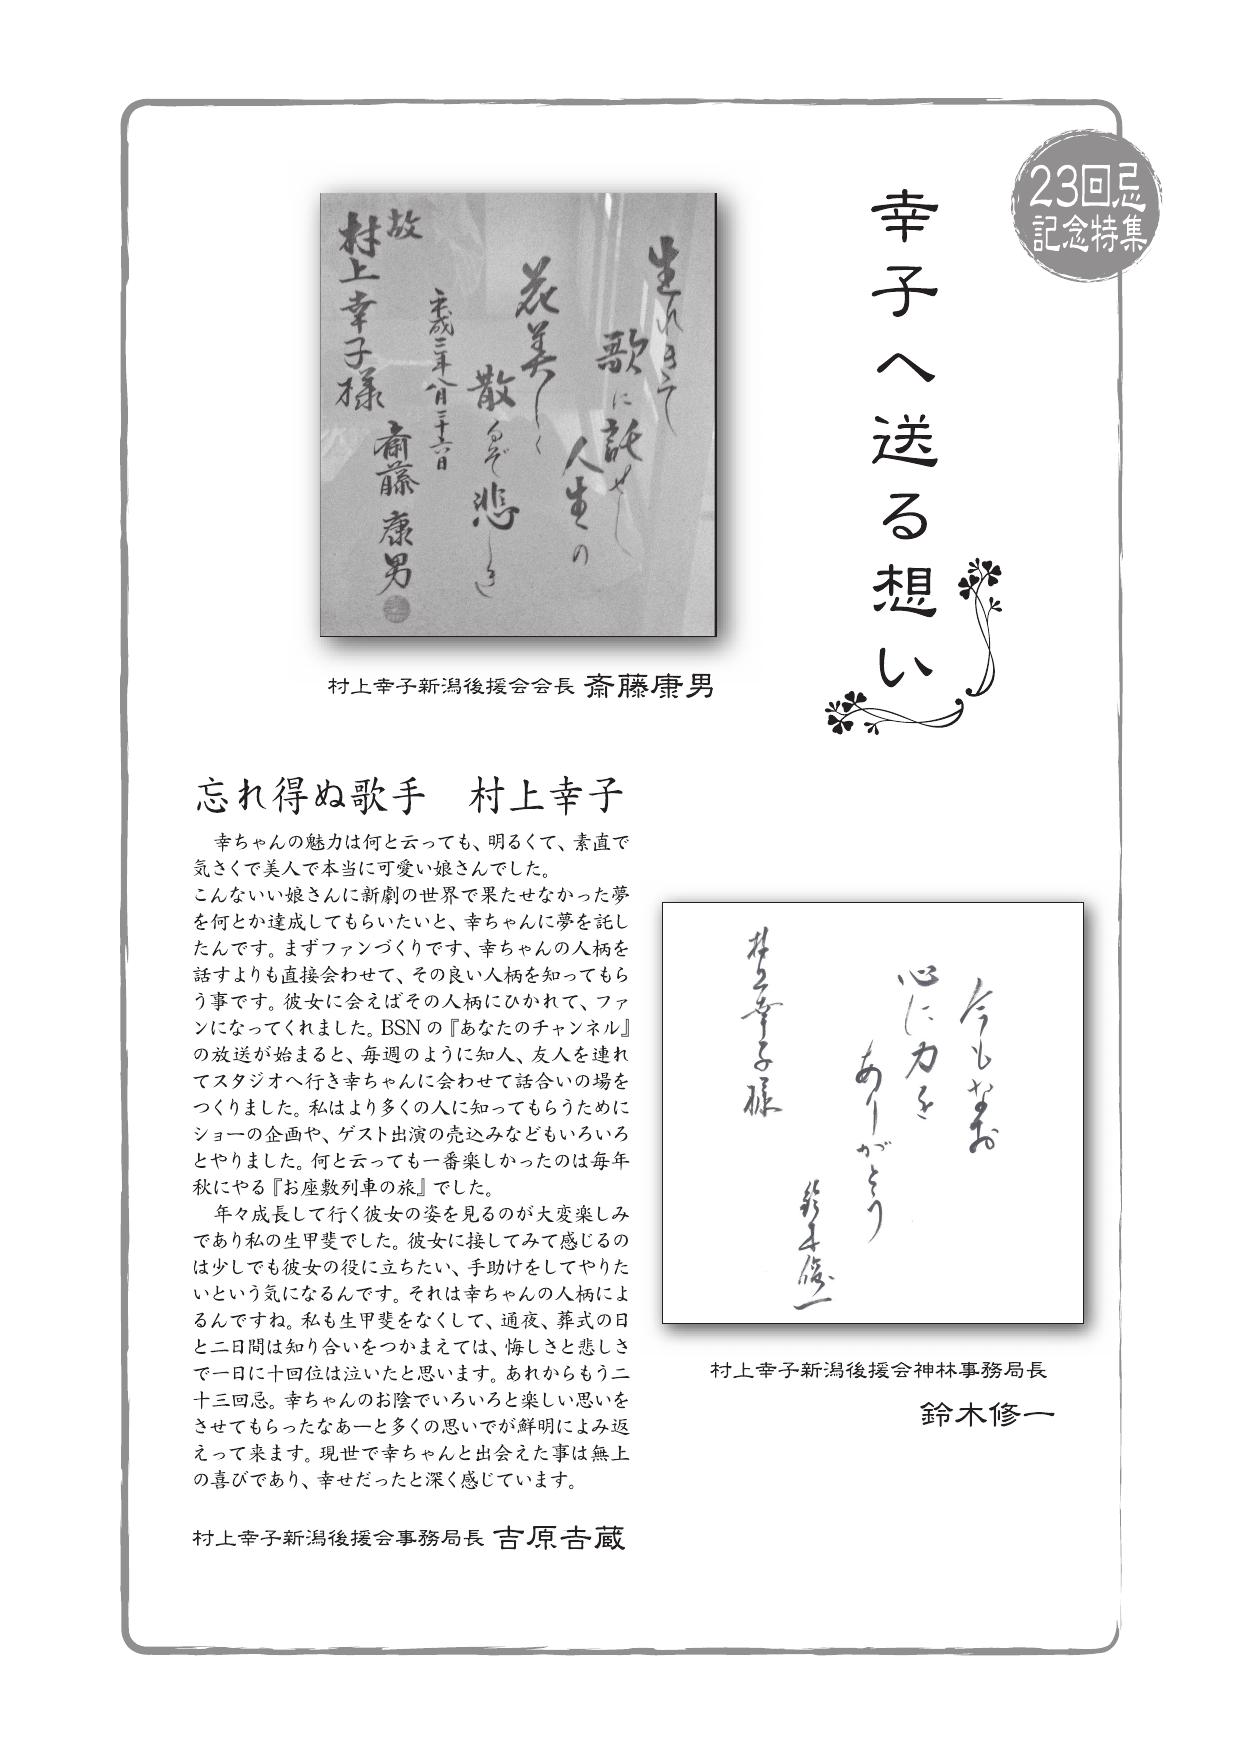 23回忌
記念特集
幸子へ送る想い
生れきて
歌に託せし
人生の
花美しく
散るぞ悲しき
平成二年八月二十六日
故
村上幸子様
斎藤康男
村上幸子新潟後援会会長 斎藤康男
忘れ得ぬ歌手　村上幸子
　幸ちゃんの魅力は何と云っても、明るくて、素直で
気さくで美人で本当に可愛い娘さんでした。
こんないい娘さんに新劇の世界で果たせなかった夢
を何とか達成してもらいたいと、幸ちゃんに夢を託し
たんです。まずファンづくりです、幸ちゃんの人柄を
話すよりも直接会わせて、その良い人柄を知ってもら
う事です。彼女に会えばその人柄にひかれて、ファ
ンになってくれました。BSNの『あなたのチャンネル』
の放送が始まると、毎週のように知人、友人を連れ
てスタジオへ行き幸ちゃんに会わせて話合いの場を
つくりました。私はより多くの人に知ってもらうために
ショーの企画や、ゲスト出演の売込みなどもいろいろ
とやりました。何と云っても一番楽しかったのは毎年
秋にやる『お座敷列車の旅』でした。
　年々成長して行く彼女の姿を見るのが大変楽しみ
であり私の生甲斐でした。彼女に接してみて感じるの
は少しでも彼女の役に立ちたい、手助けをしてやりた
いという気になるんです。それは幸ちゃんの人柄によ
るんですね。私も生甲斐をなくして、通夜、葬式の日
と二日間は知り合いをつかまえては、悔しさと悲しさ
で一日に十回位は泣いたと思います。あれからもう二
十三回忌。幸ちゃんのお陰でいろいろと楽しい思いを
させてもらったなあーと多くの思いでが鮮明によみ返
えって来ます。現世で幸ちゃんと出会えた事は無上
の喜びであり、幸せだったと深く感じています。
村上幸子新潟後援会事務局長 吉原𠮷蔵
今もなお
心に力を
ありがとう
村上幸子様
鈴木修一
村上幸子新潟後援会神林事務局長
鈴木修一